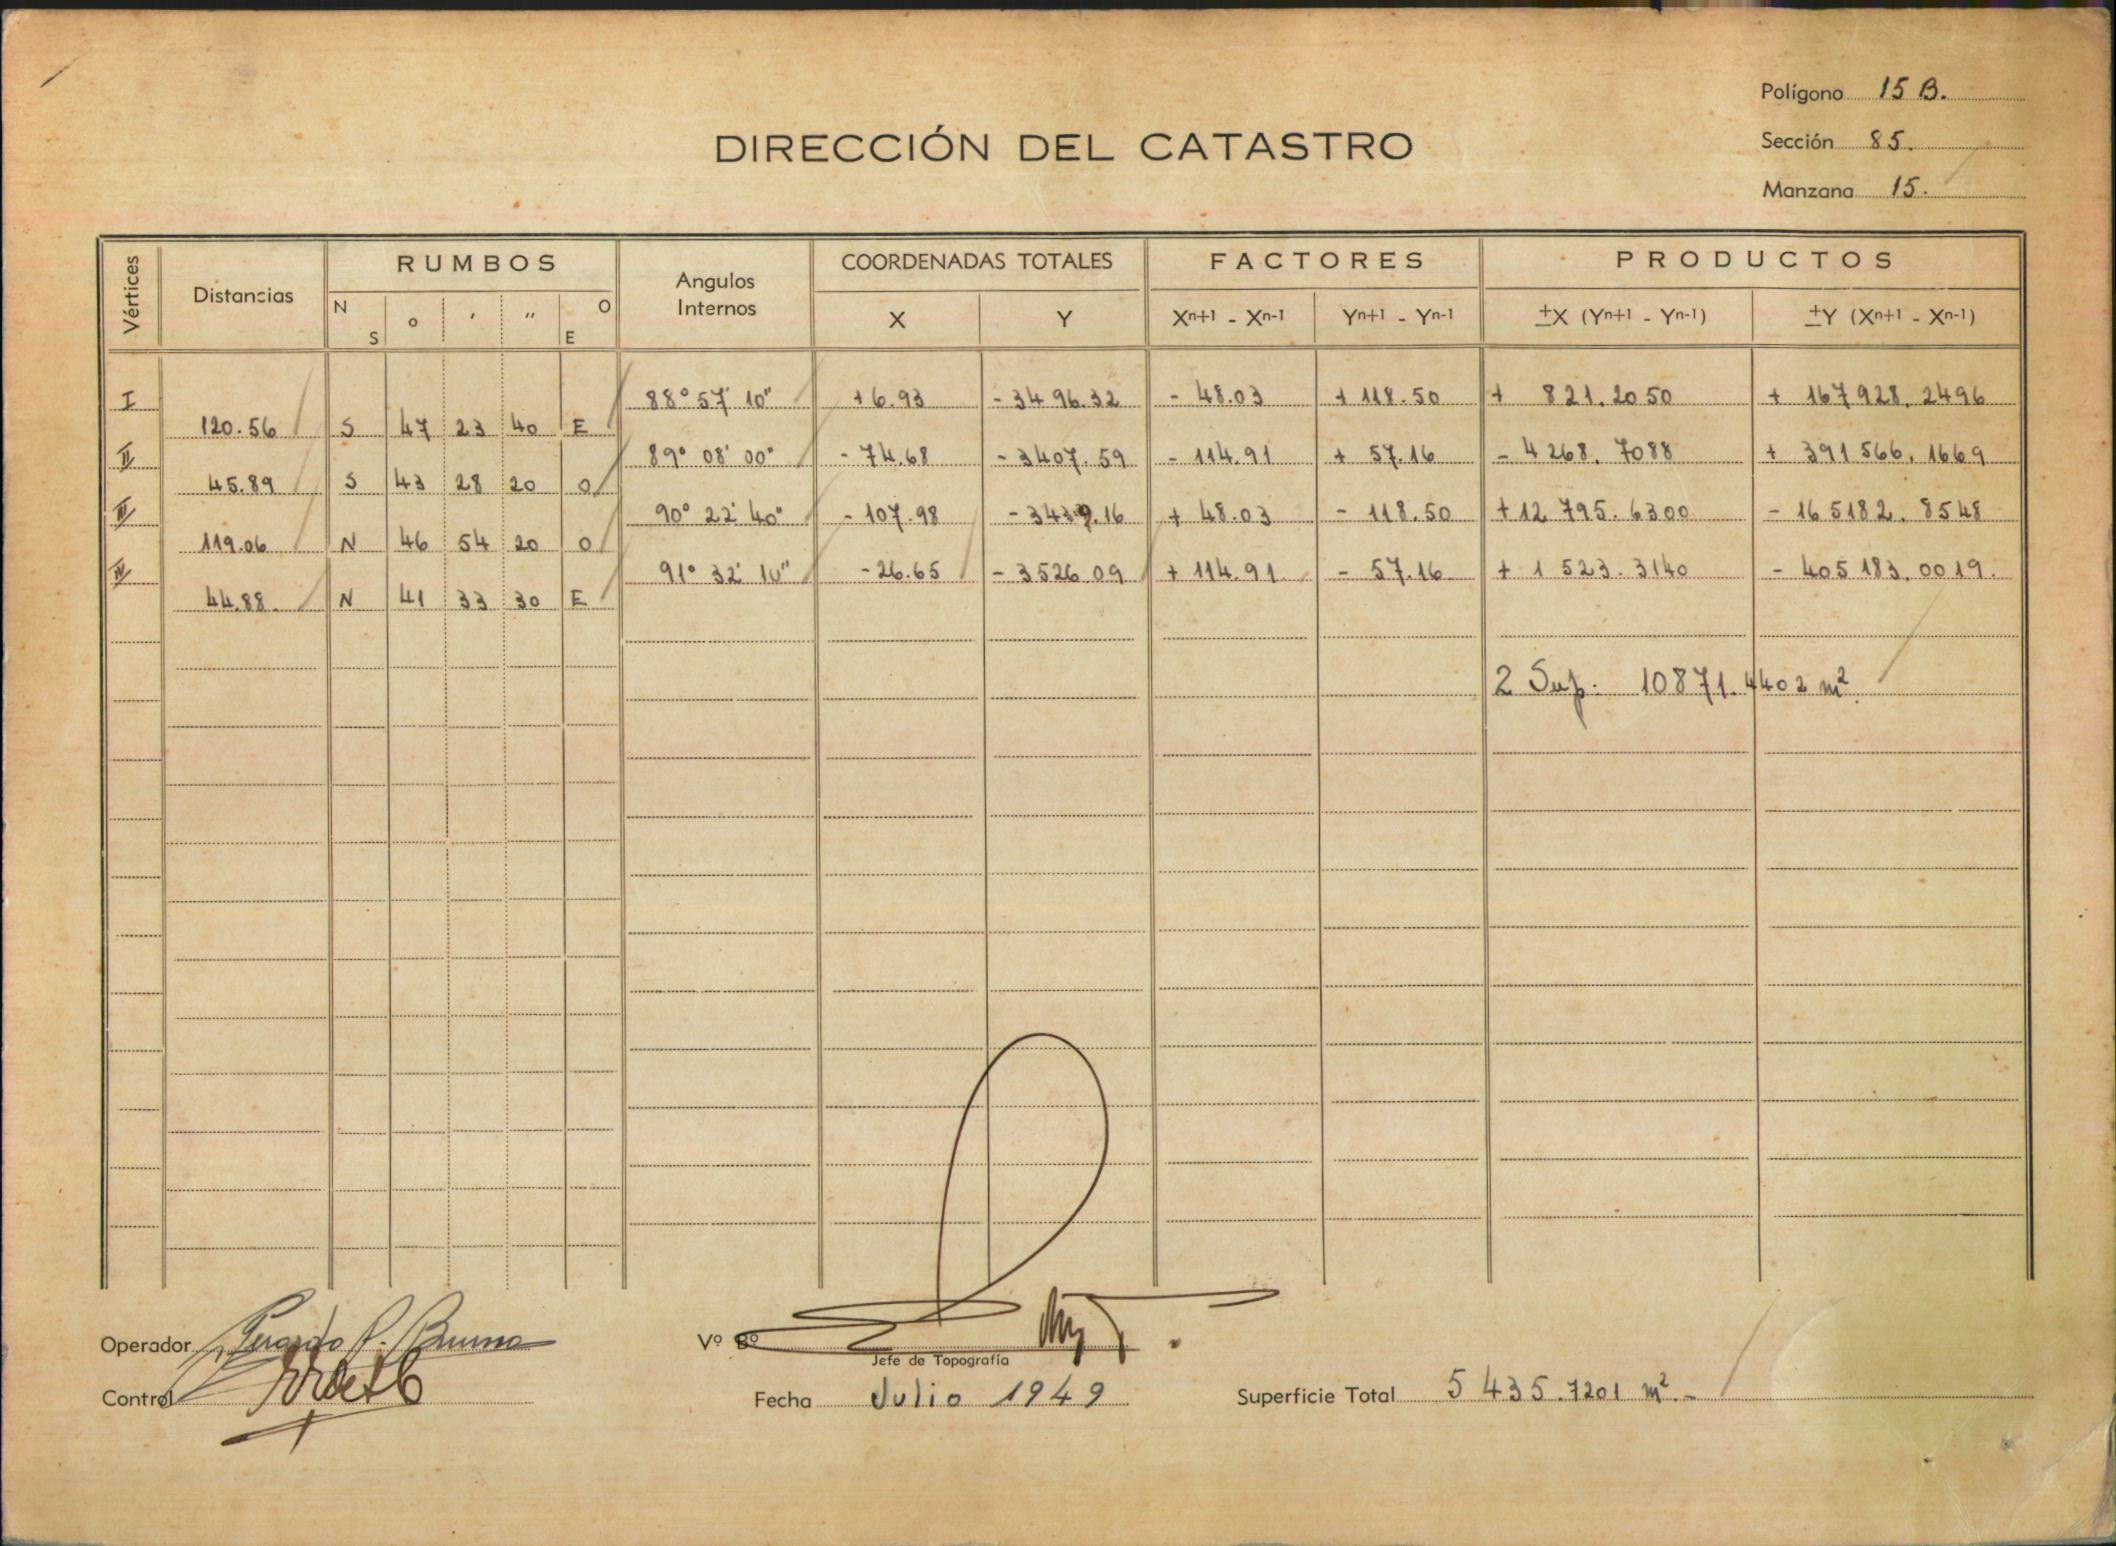 Polígono 15 B.
Sección 85.
Manzana 15.
DIRECCIÓN DEL CATASTRO
Vértices Distancias RUMBOS Angulos Internos COORDENADAS TOTALES FACTORES PRODUCTOS
N S o ' " O E X Y Xn+1 - Xn-1 Yn+1 - Yn-1 ±X (Yn+1 - Yn-1) ±Y (Xn+1 - Xn-1)
I 88° 57' 10" +6.93 - 3496.32 - 48.03 + 118.50 + 821.2050 + 167928.2496
120.56 S 47 23 40 E
II 89° 08' 00" - 74.68 - 3407.59 - 114.91 + 57.16 - 4268.7088 + 391566.1669
45.89 S 43 28 20 O
III 90° 22' 40" - 107.98 - 3439.16 + 48.03 - 118.50 + 12795.6300 - 165182.8548
119.06 N 46 54 20 O
IV 91° 32' 10" - 26.65 - 3526.09 + 114.91 - 57.16 + 1523.3140 - 405183.0019.
44.88 N 41 33 30 E
2 Sup. 10871.4402 m².
Operador
Vº Bº
Jefe de Topografía
Control
Fecha Julio 1949
Superficie Total 5435.7201 m².-